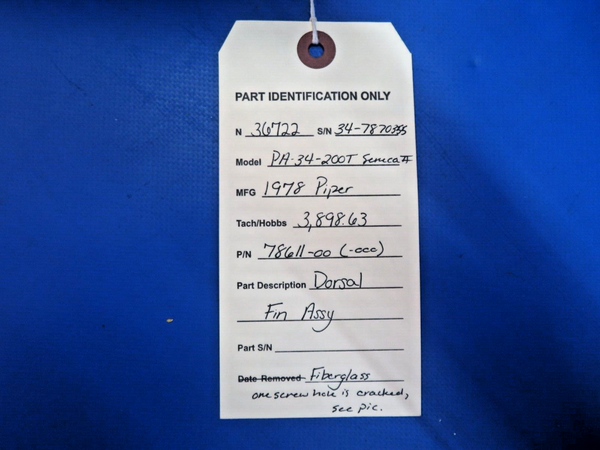 PART IDENTIFICATION ONLY
N 36722 S/N 34-7870355
Model PA-34-200T Seneca II
MFG 1978 Piper
Tach/Hobbs 3,898.63
P/N 78611-00 (-000)
Part Description Dorsal
Fin Assy
Part S/N
Date Removed Fiberglass
one screw hole is cracked,
see pic.